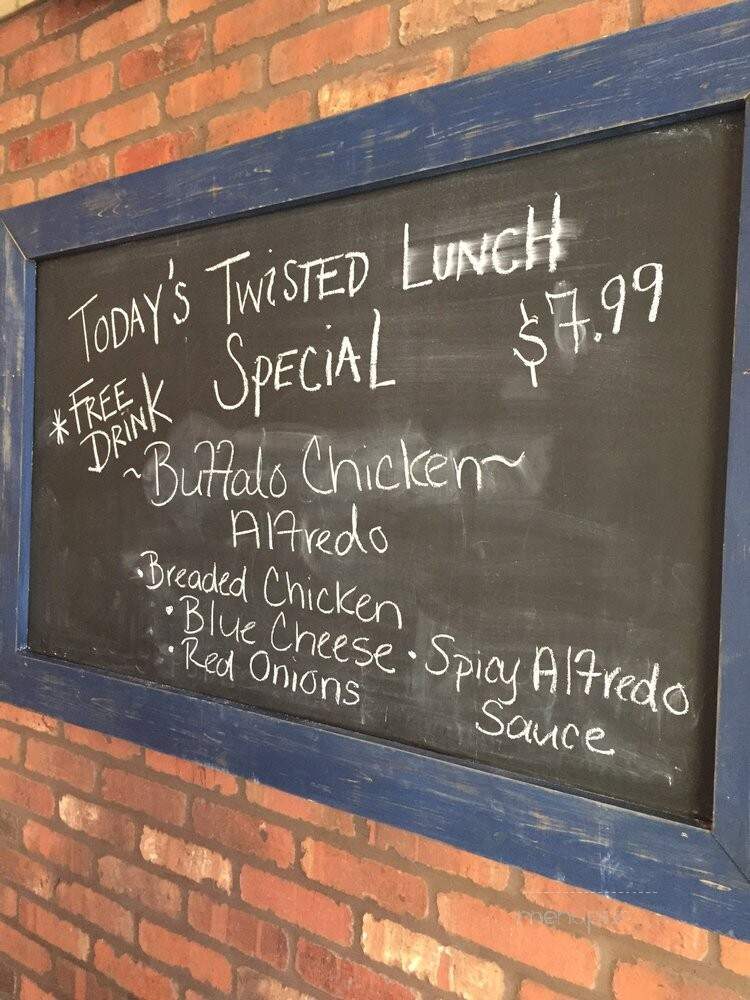 TODAY'S TWISTED LUNCH
SPECIAL $7.99
*FREE
DRINK
~Buffalo Chicken~
Alfredo
•Breaded Chicken
•Blue Cheese •Spicy Alfredo
•Red Onions Sauce